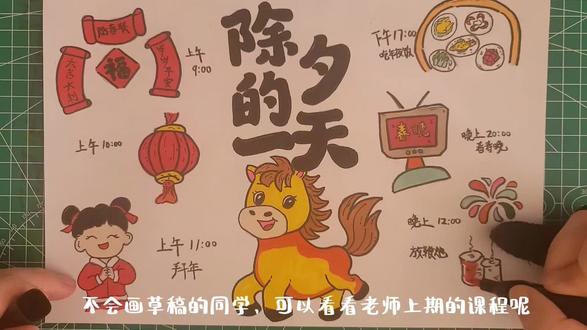 除夕
的一天
福
上午
9:00
上午 10:00
上午 11:00
拜年
下午 17:00
吃年夜饭
春晚
晚上 20:00
看春晚
晚上 12:00
放鞭炮
不会画草稿的同学,可以看看老师上期的课程呢